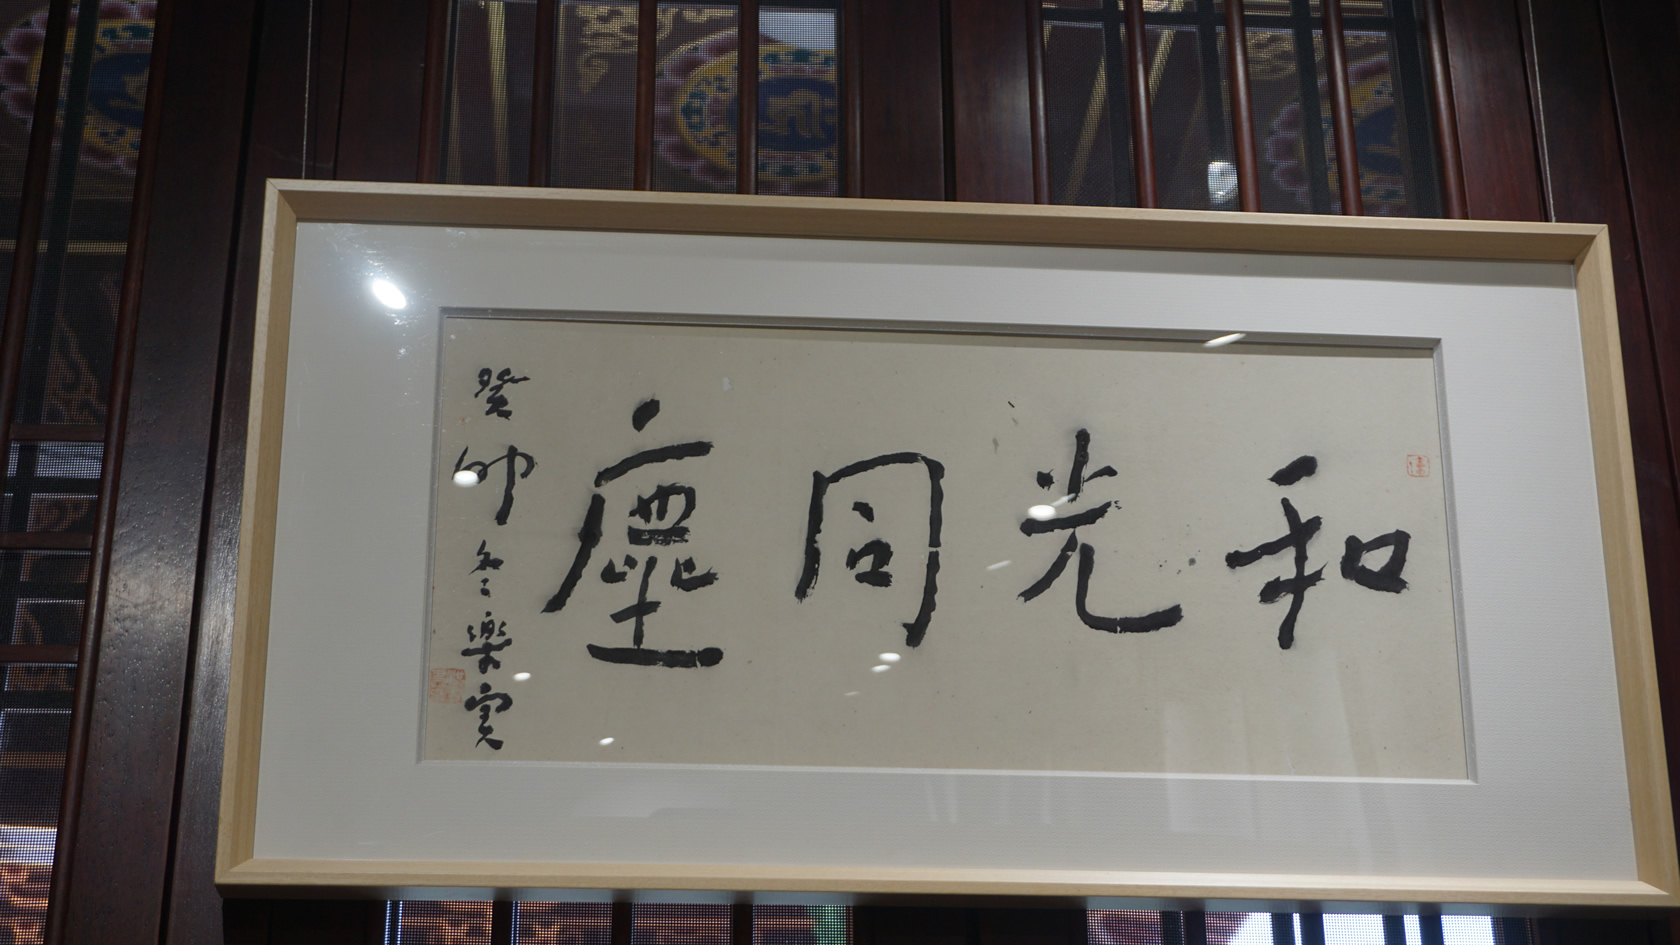 和光同塵
癸卯冬樂寬